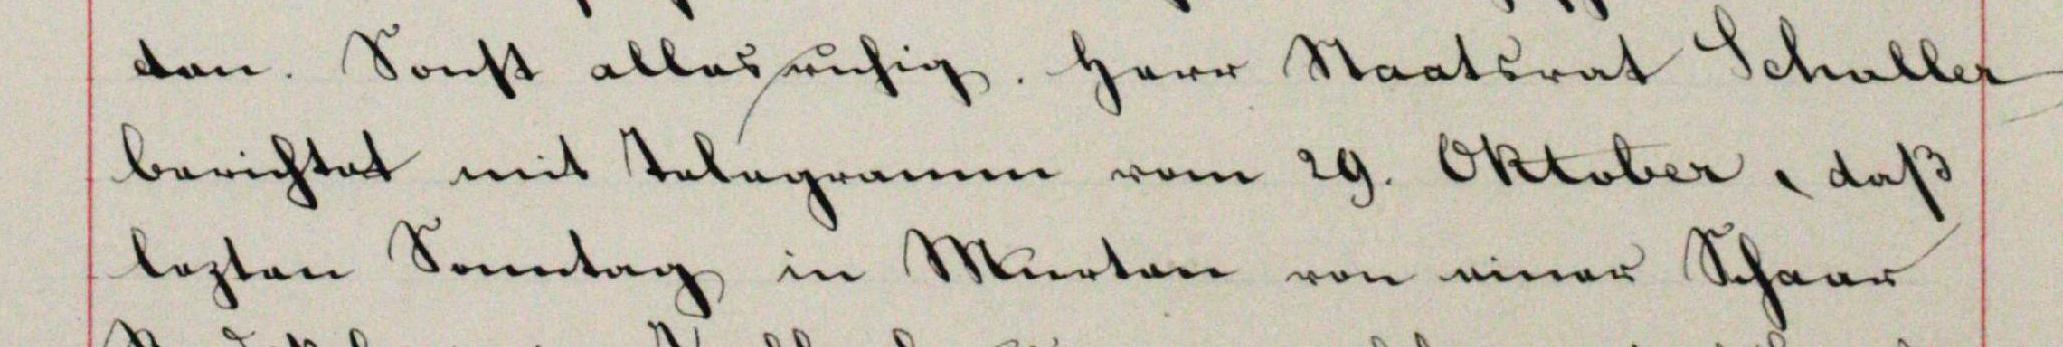 ten. Sonst alles ruhig. Herr Staatsrat Schaller
berichtet mit Telegramm vom 29. Oktober, daß
lezten Sonntag in Murten von einer Schaar